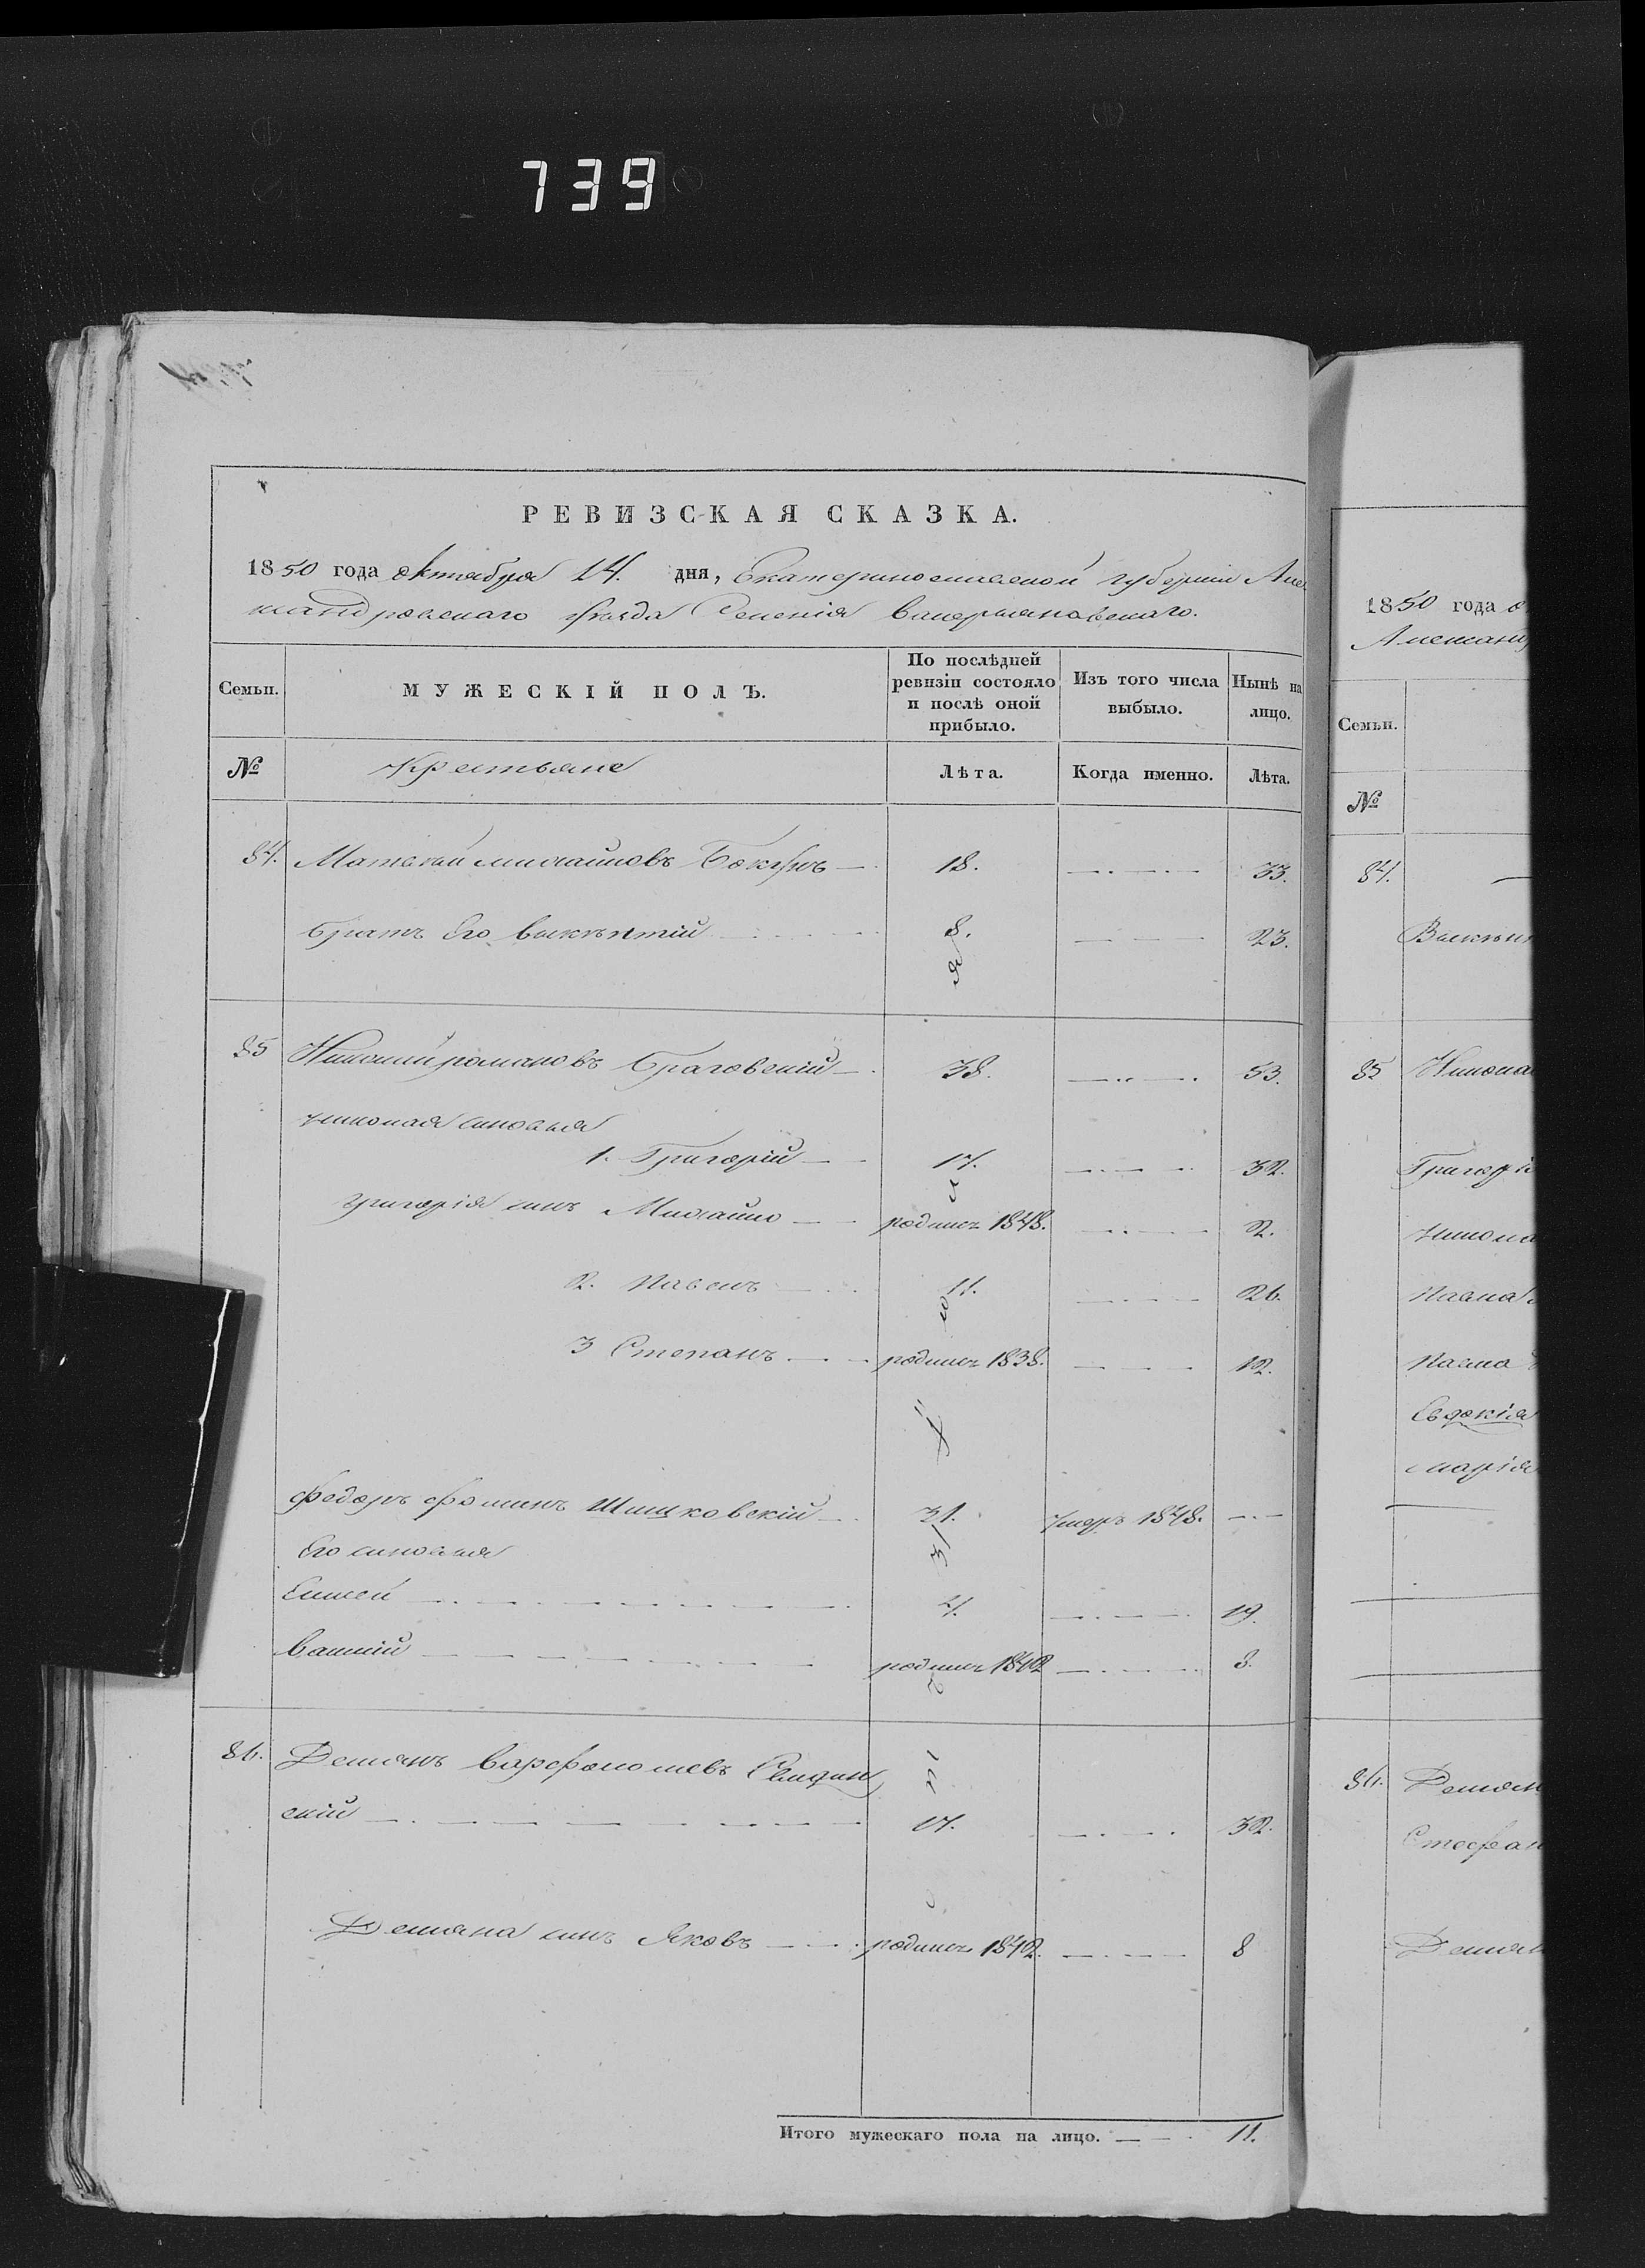 739
РЕВИЗСКАЯ СКАЗКА.
1850 года октября 14. дня, Екатеринославской губернiи Алек
сандровскаго уѣзда Селенiя
Семьи.
МУЖЕСКІЙ ПОЛЪ.
По послѣдней ревизіи состояло и послѣ оной прибыло.
Изъ того числа выбыло.
Нынѣ на лицо.
№ Крестьяне Лѣта. Когда именно. Лѣта.
84. Матвѣй Михайловъ 18. 33.
братъ Его 8. 23.
85 Николай романовъ Браговскій 38. 53.
николая сыновья
1. Григорій 17. 32.
григорія сынъ Михайло родился 1848. 2.
2. Павелъ 11. 26.
3 Степанъ родился 1838. 12.
федоръ фоминъ Шишковскій 31. умеръ 1848.
Его сыновья
Елисей 4. 19.
Василій родился 1842 8.
86. Демянъ варфоломеевъ
скій 17. 32.
Демяна сынъ Яковъ родился 1842. 8
Итого мужескаго пола на лицо. 11.
1850 года
Семьи.
№
84.
85 Никола
Григорі
Никола
Павла
Павла
Евдокія
марія
86. Демян
Стефан
Демян